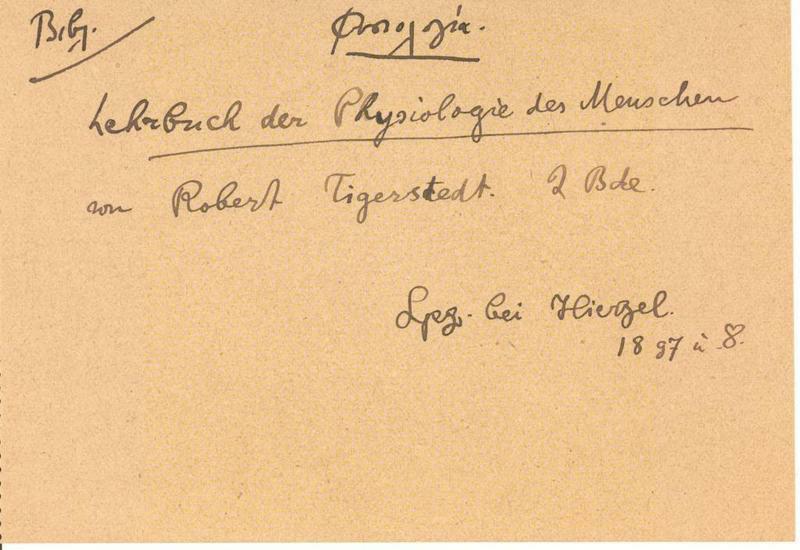 Bibl. Φυσιολογία.
Lehrbuch der Physiologie des Menschen
von Robert Tigerstedt. 2 Bde.
Lpzg. bei Hirzel.
1897 u 8.